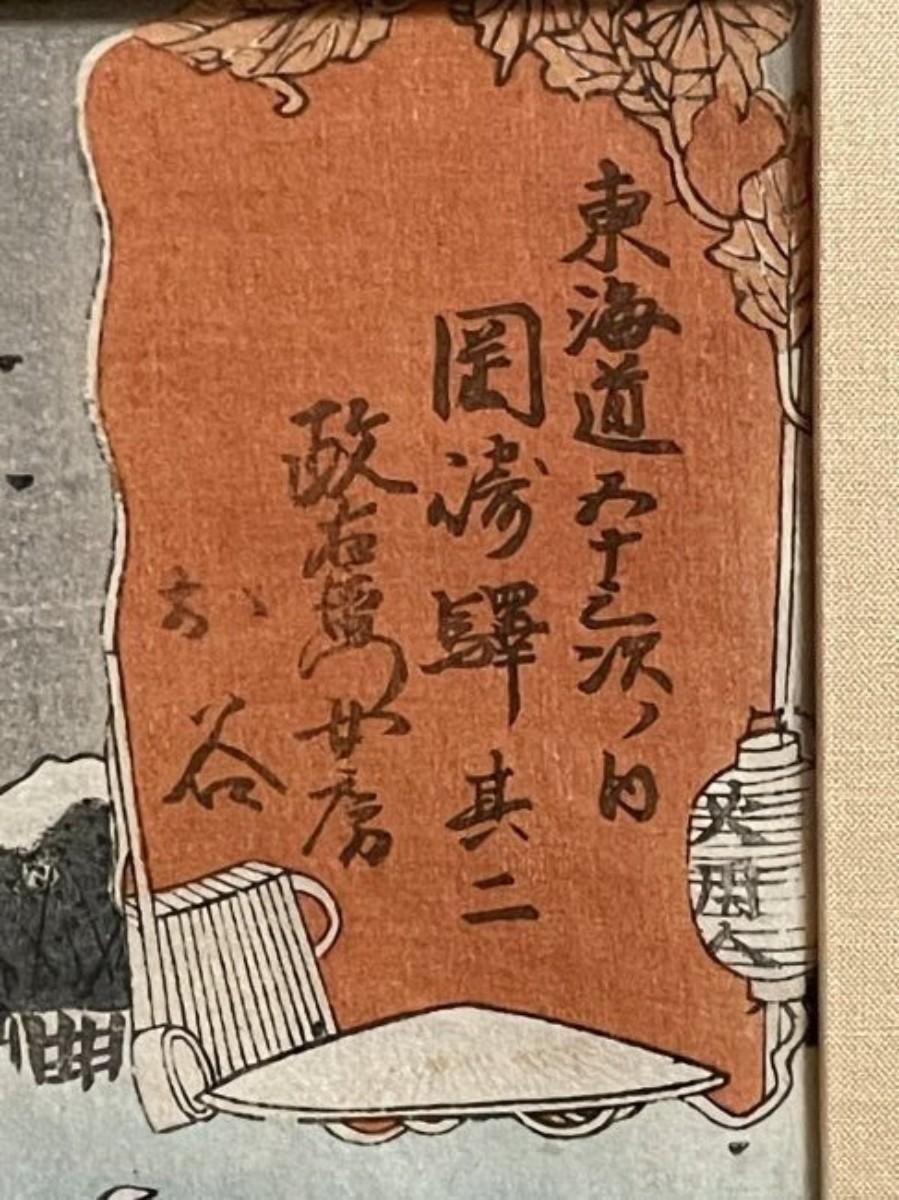 東海道五十三次ノ内
岡崎驛 其二
政右衛門女房
お谷